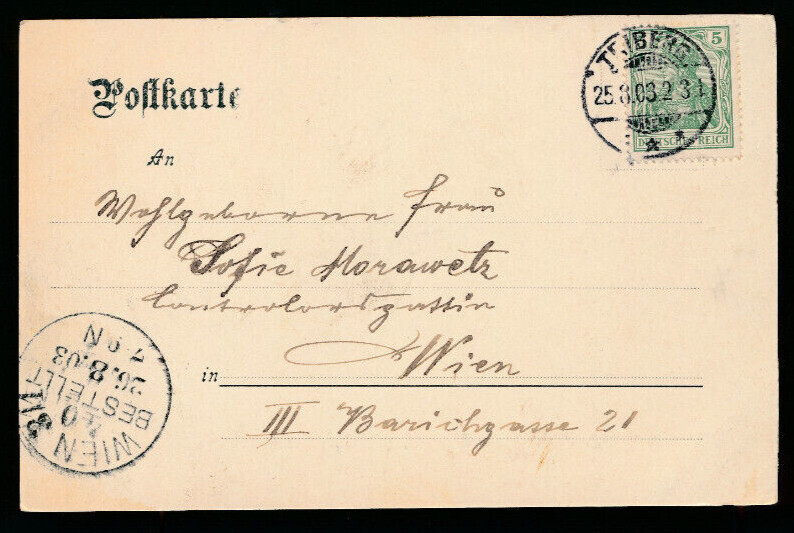 Postkarte
5
TRIBERG
25.8.03.2-3 N
DEUTSCHES REICH
An
Wohlgeborne Frau
Sofie Morawetz
Controlorsgattin
in Wien
III Barichgasse 21
WIEN 3/1
40
BESTELLT
26.8.03
7.9 N